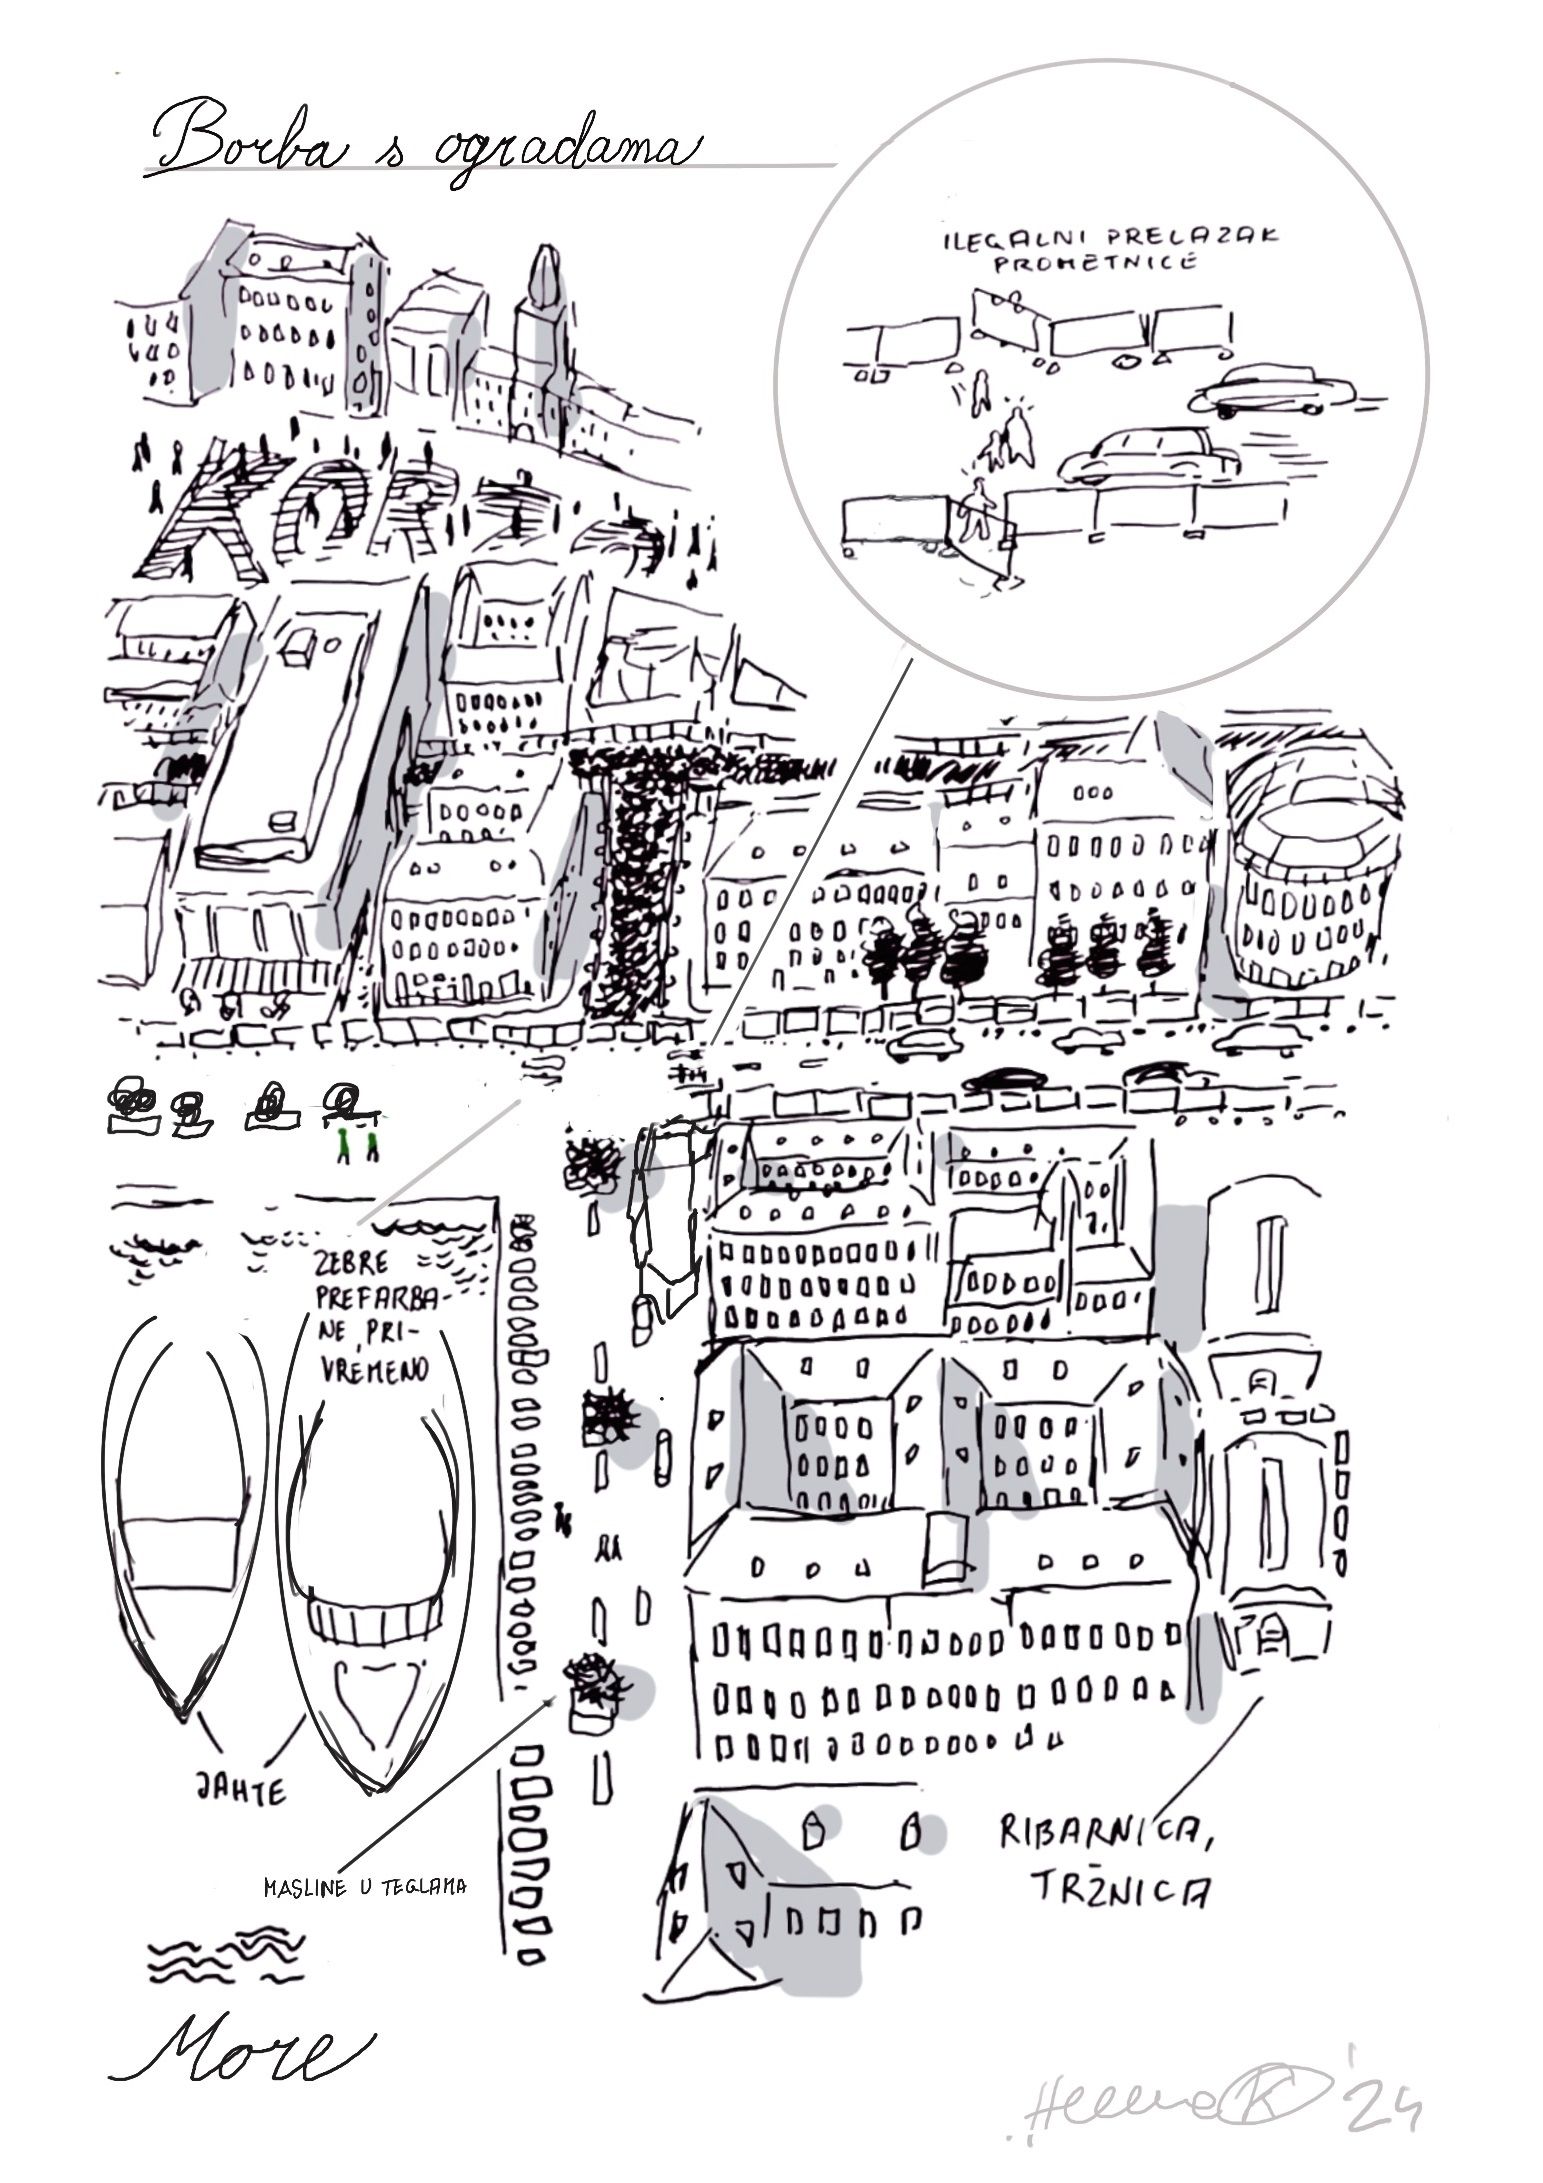 Borba s ogradama
ILEGALNI PRELAZAK
PROMETNICE
KORZO
ZEBRE
PREFARBA-
NE PRI-
VREMENO
JAHTE
MASLINE U TEGLAMA
RIBARNICA,
TRŽNICA
More
'24